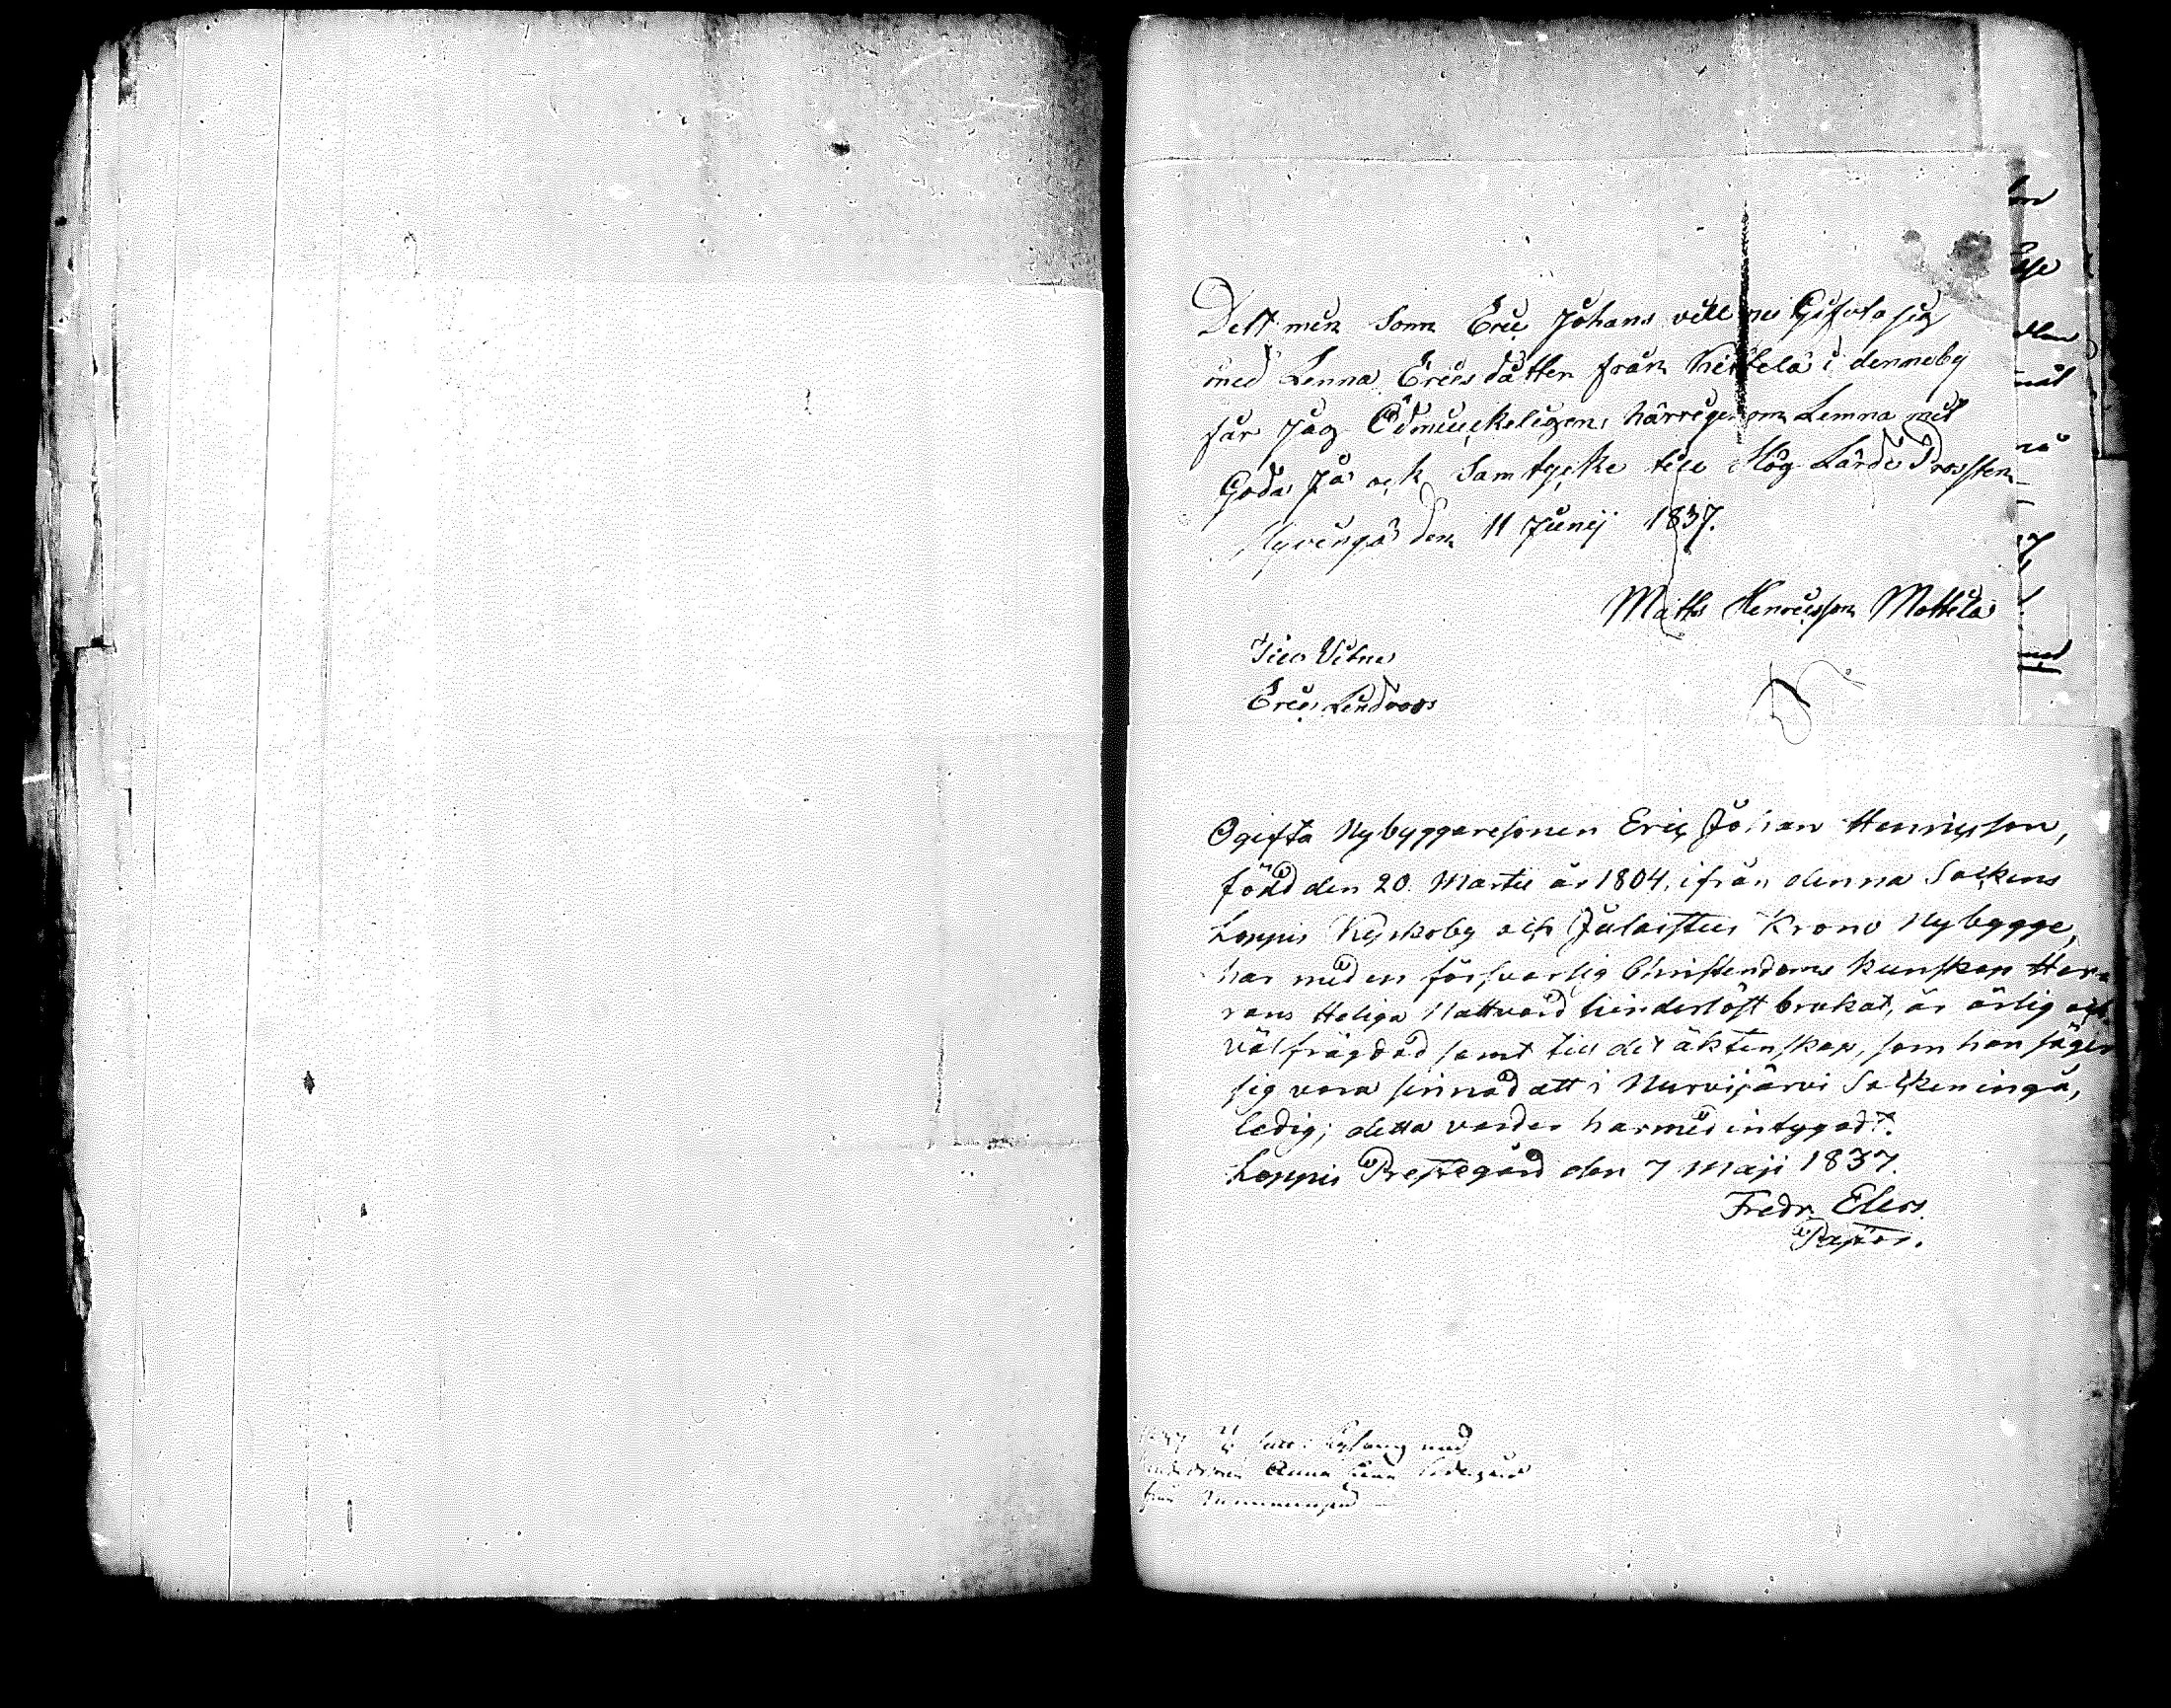 Dett min Sonn Eric Johans vill nu Gifvta sig
med Lenna Ericsdåtter från Kittelä i denneby
får Jag Ödmiuckeligen härrigenom Lemna mit
Goda Ja ock Samtycke till Hög Lärde Prossten
Hyvingä den 11 Junij 1837.
Matts Henricsson Mottela
Till Vitne
Erics Lindroos
Ogifta Nybyggaresonen Eric Johan Henricsson,
född den 20. Martii år 1804, ifrån denna Sockens
Loppis Kyrkoby och Julaistus Krono Nybygge,
har med en försvarlig Christendoms kunskap Her-
rans Heliga Nattvard hinderlöst brukat, är ärlig och
välfrägdad samt till det äktenskap, som han säger
sig vara sinnad att i Nurmijärvi Socken ingå,
ledig; detta varder härmed intygadt.
Loppis Prestegård den 7 Maji 1837.
Fredr. Elers.
Pastor.
1837 med
Anna
från